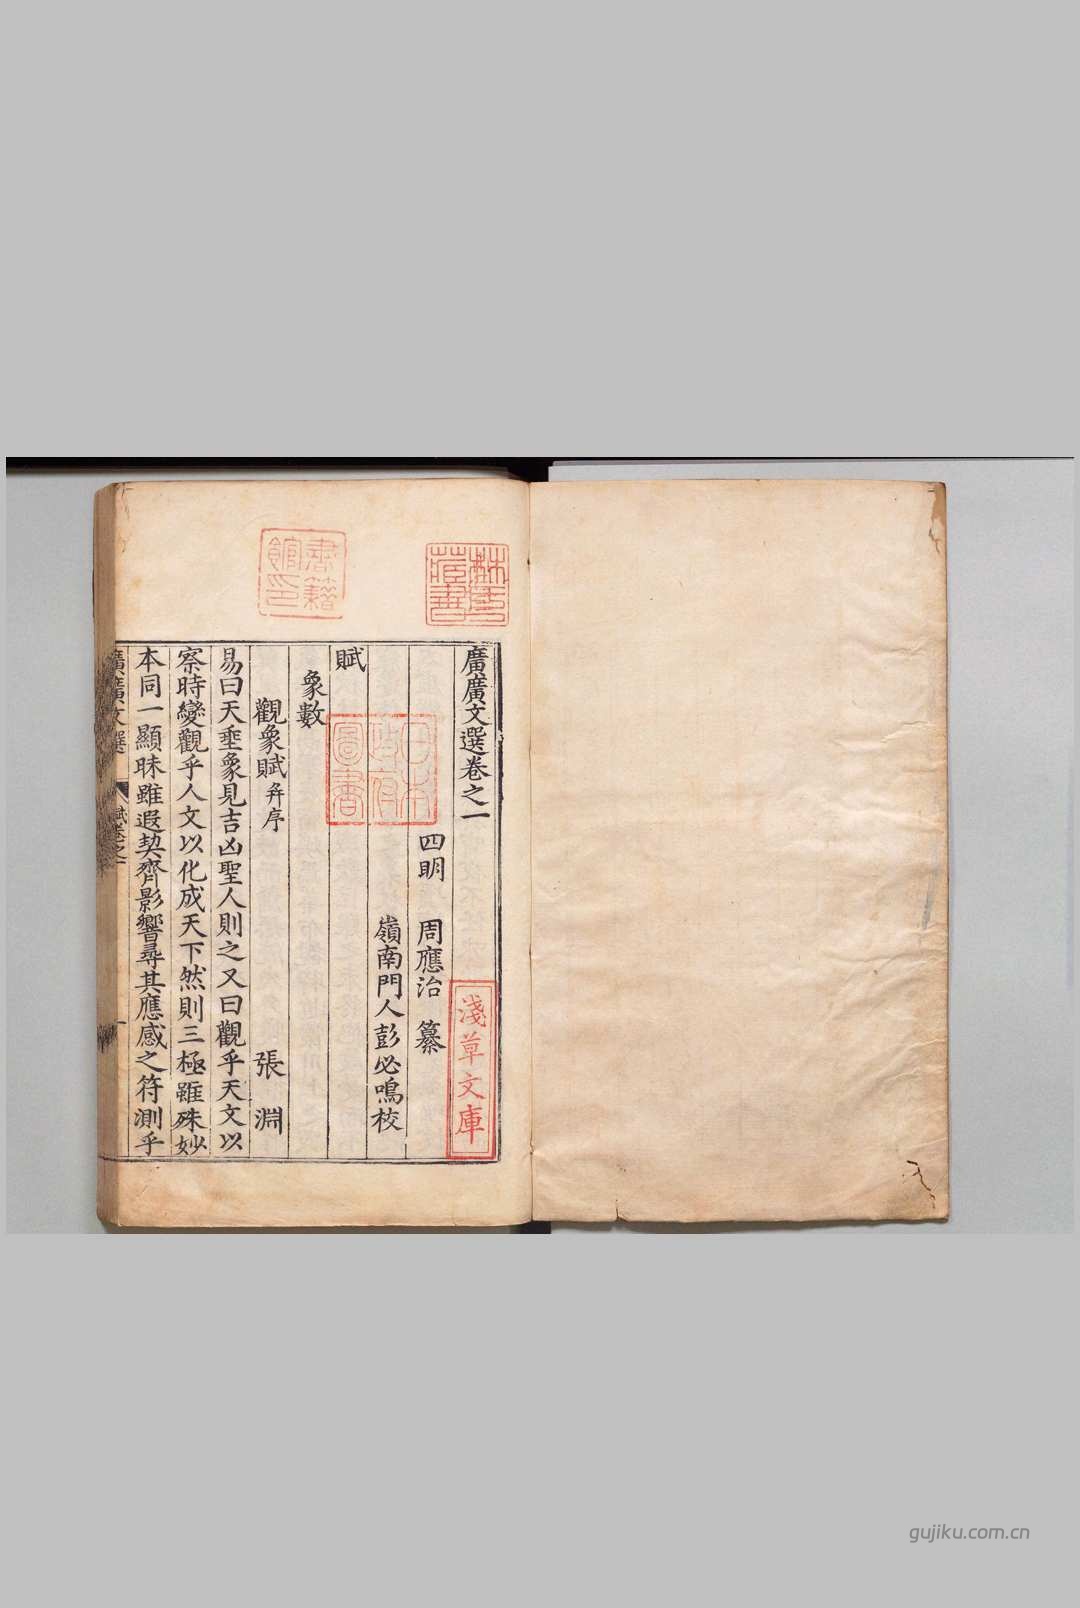 廣廣文選卷之一
四明　周應治　纂
嶺南門人彭必鳴校
賦
象數
觀象賦并序　張淵
易曰天垂象見吉凶聖人則之又曰觀乎天文以
察時變觀乎人文以化成天下然則三極雖殊妙
本同一顯昧雖遐契齊影響尋其應感之符測乎
廣廣文選　賦卷之一　一
林氏藏書
書籍館印
日本政府圖書
淺草文庫
gujiku.com.cn